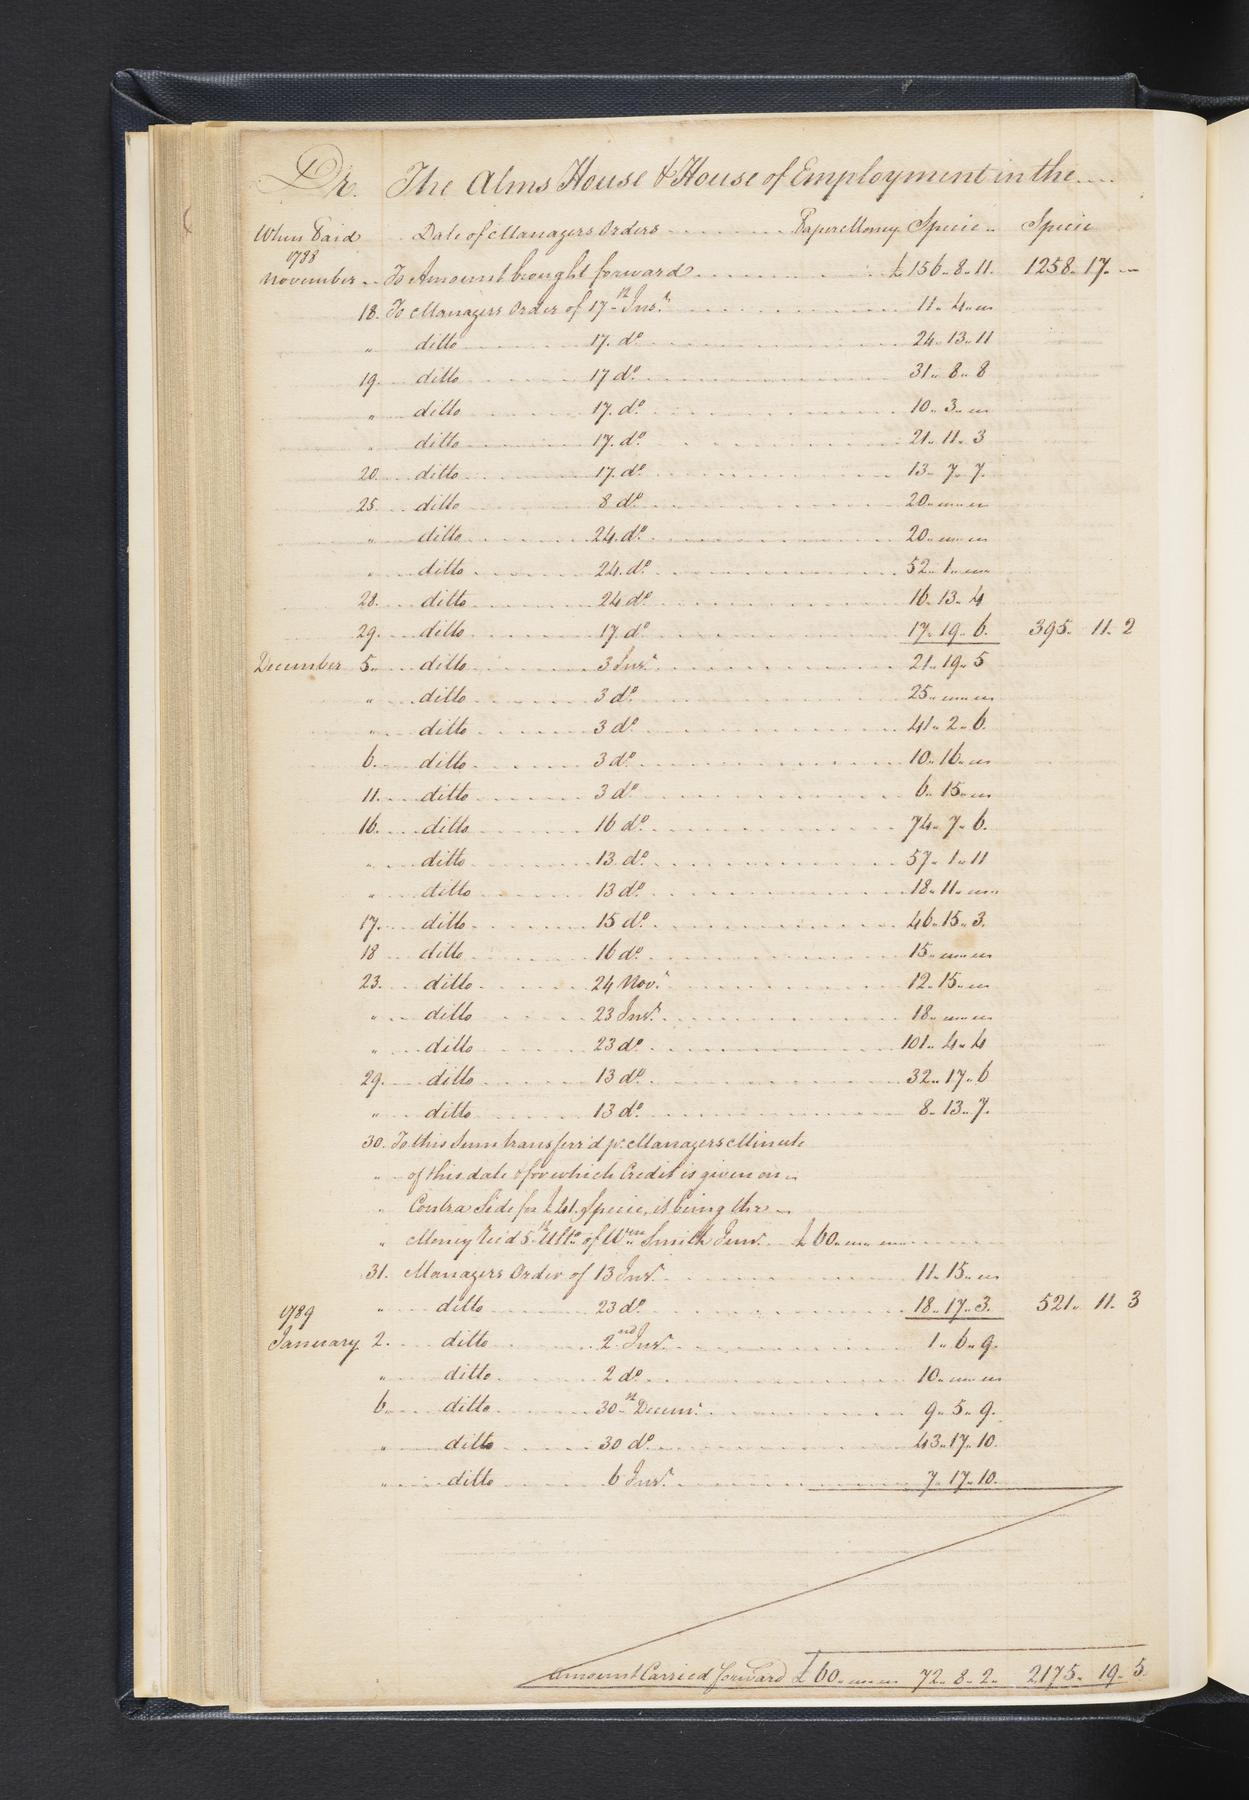 Dr. The Alms House & House of Employment in the
When Paid Date of Managers Orders Paper Money Specie Specie
1788
November To Amount brought forward £156.. 8.. 11. 1258.. 17. —
18. To Managers Order of 17th Inst. 11.. 4.. "
" ditto 17. do. 24.. 13.. 11
19. ditto 17 do. 31.. 8.. 8
" ditto 17. do. 10.. 3.. "
" ditto 17. do. 21.. 11.. 3
20. ditto 17. do. 13.. 7.. 7.
25. ditto 8 do. 20.. " .. "
" ditto 24. do. 20.. " .. "
" ditto 24. do. 52.. 1.. "
28. ditto 24 do. 16.. 13.. 4
29. ditto 17. do. 17.. 19.. 6. 395.. 11.. 2
December 5. ditto 3 Inst. 21.. 19.. 5
" ditto 3 do. 25.. " .. "
" ditto 3 do. 41.. 2.. 6.
6. ditto 3 do. 10.. 16.. "
11. ditto 3 do. 6.. 15.. "
16. ditto 16 do. 74.. 7.. 6.
" ditto 13. do. 57.. 1.. 11
" ditto 13 do. 18.. 11.. "
17. ditto 15 do. 46.. 15.. 3.
18 ditto 16 do. 15.. " .. "
23. ditto 24 Nov. 12.. 15.. "
" ditto 23 Inst. 18.. " .. "
" ditto 23 do. 101.. 4.. 4
29. ditto 13 do. 32.. 17.. 6
" ditto 13 do. 8.. 13.. 7.
30. To this Sum transferr'd pr. Managers Minute
" of this date & for which Credit is given on
" Contra Side for £41. Specie, it being the
" Money Rec'd 5th Ulto. of Wm. Smith Junr. £60.. " .. "
31. Managers Order of 13 Inst. 11.. 15.. "
" ditto 23 do. 18.. 17.. 3. 521.. 11.. 3
1789
January 2. ditto 2nd Inst. 1.. 6.. 9.
" ditto 2 do. 10.. " .. "
6. ditto 30th Decem. 9.. 5.. 9.
" ditto 30 do. 43.. 17.. 10.
" ditto 6 Inst. 7.. 17.. 10.
Amount Carried forward £60.. " .. " 72.. 8.. 2.. 2175.. 19.. 5.